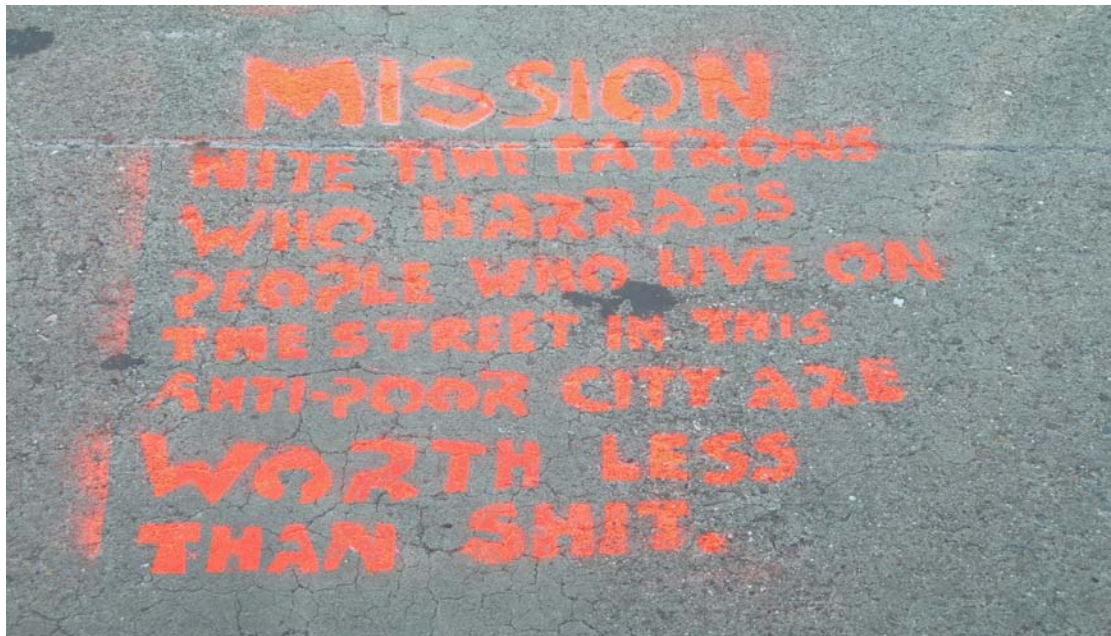 MISSION
NITE TIME PATRONS
WHO HARRASS
PEOPLE WHO LIVE ON
THE STREET IN THIS
ANTI-POOR CITY ARE
WORTH LESS
THAN SHIT.